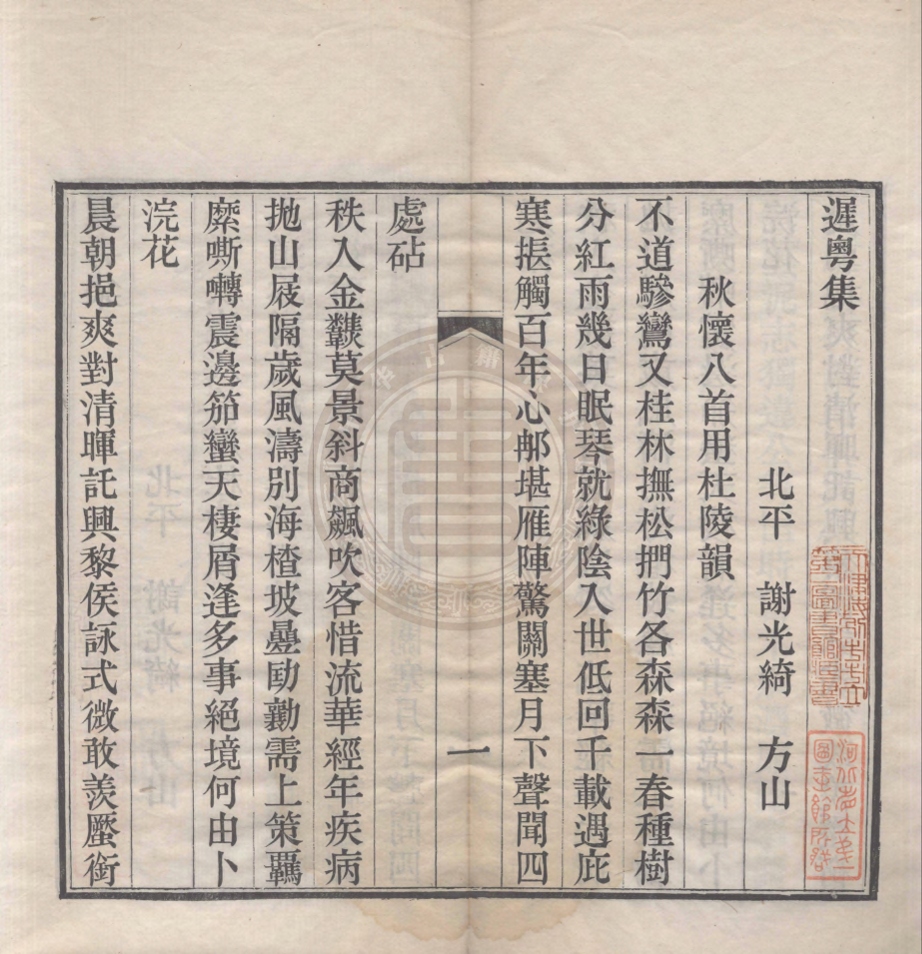 遲粤集
北平 謝光綺 方山
秋懷八首用杜陵韻
不道驂鸞又桂林撫松捫竹各森森一春種樹
分紅雨幾日眠琴就綠陰入世低回千載遇庇
寒掁觸百年心郍堪雁陣驚關塞月下聲聞四
一
處砧
秩入金莫景斜商飆吹客惜流華經年疾病
拋山屐隔歲風濤別海楂坡疊劻勷需上策羈
縻嘶囀震邊笳蠻天棲屑逢多事絕境何由卜
浣花
晨朝挹爽對清暉託興黎侯詠式微敢羨壓銜